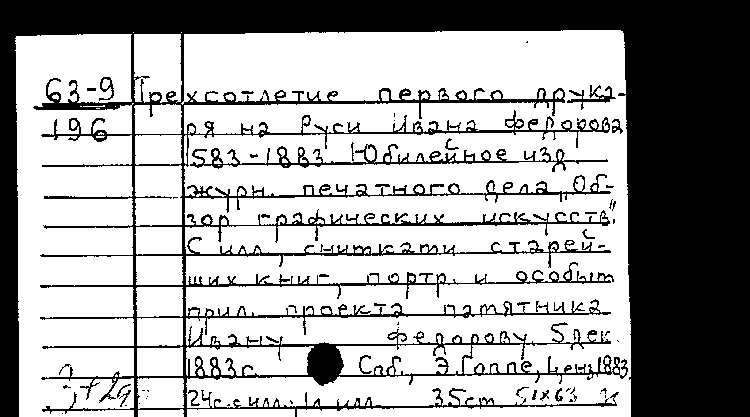 63-9 Трехсотлетие первого друка-
196 ря на Руси Ивана Федорова
1583-1883. Юбилейное изд.
журн. печатного дела „Об-
зор графических искусств"
С илл., снимками старей-
ших книг, портр. и особым
прил. проекта памятника
Ивану Федорову. 5 дек.
1883г. Спб., Э. Гоппе, ценз. 1883.
24с. с илл.; 1л илл. 35см 51х63